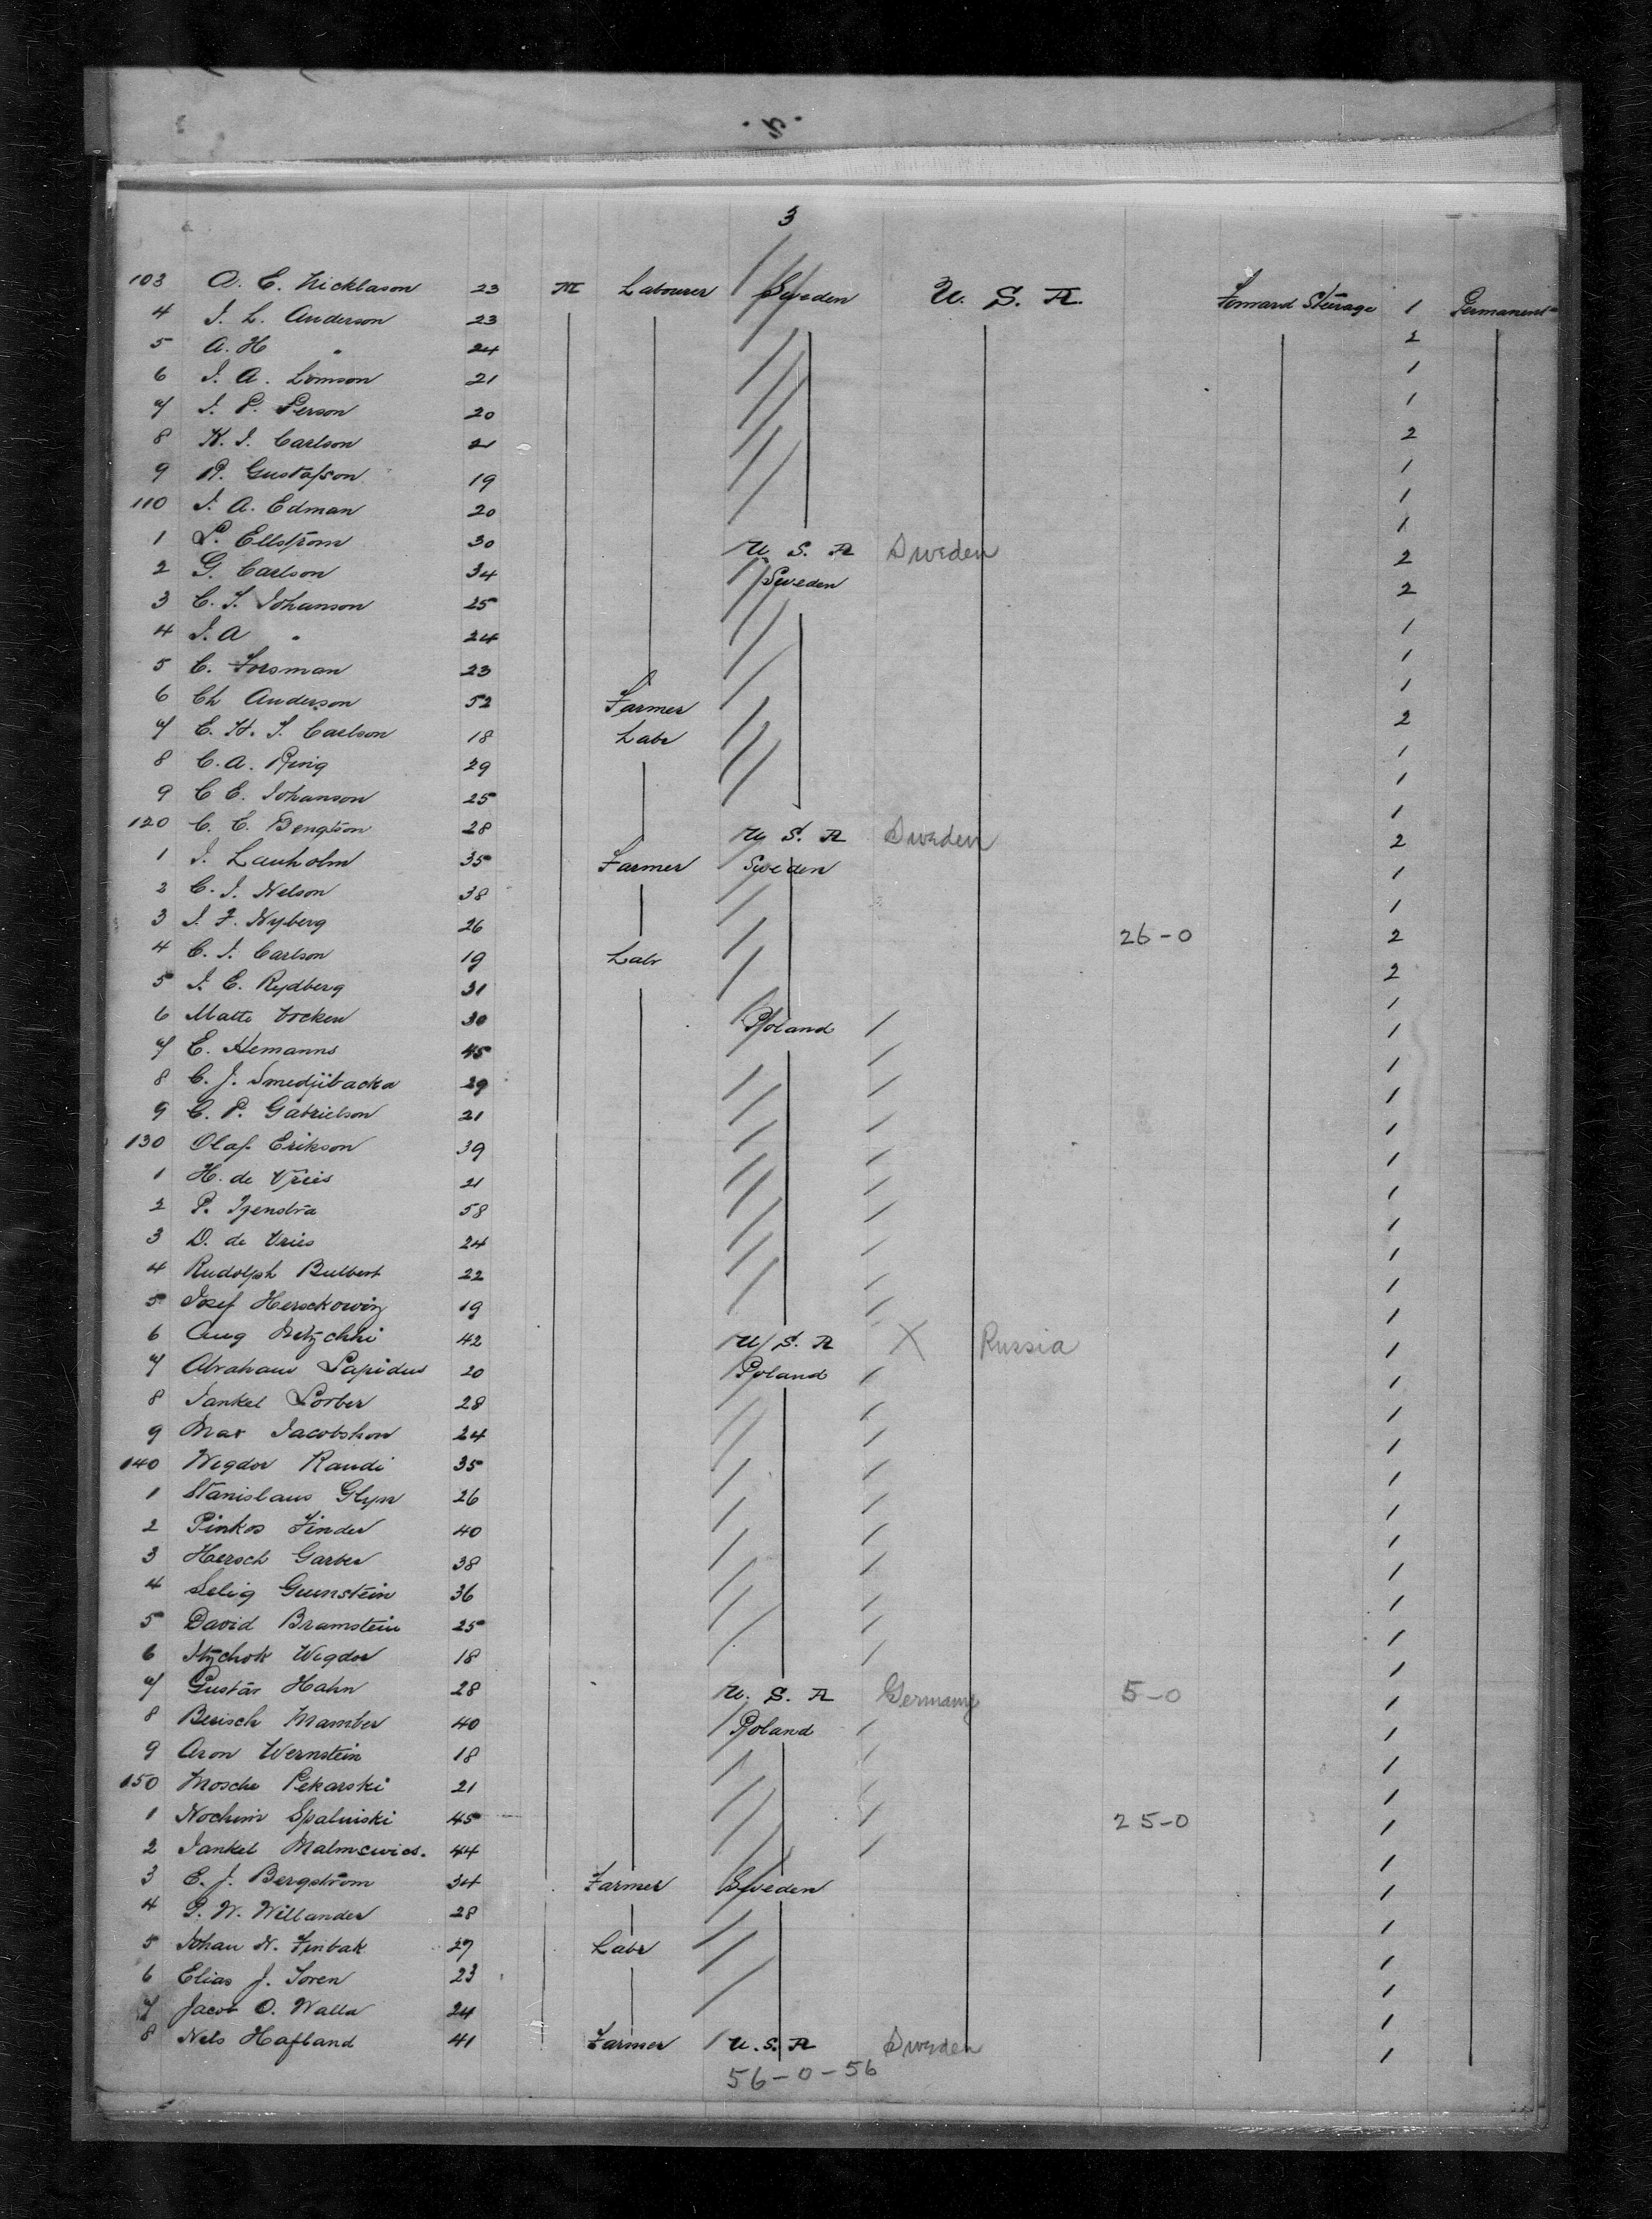 3
103 A. E. Nicklason 23 M Labourer Sweden U. S. A. Forward Steerage 1 Permanent
4 J. L. Anderson 23 2
5 A. H " 24 1
6 J. A. Lomson 21 1
7 J. P. Person 20 2
8 K. J. Carlson 21 1
9 P. Gustafson 19 1
110 J. A. Edman 20 1
1 P. Ellstrom 30 U. S. A Sweden 2
2 G. Carlson 34 Sweden 2
3 C. J. Johanson 25 1
4 J. A " 24 1
5 C. Forsman 23 1
6 Ch Anderson 52 Farmer 2
7 E. H. J. Carlson 18 Labr 1
8 C. A. Ring 29 1
9 C E. Johanson 25 1
120 C. E. Bengtson 28 U. S. A Sweden 2
1 J. Lauholm 35 Farmer Sweden 1
2 C. J. Nelson 38 1
3 J. F. Nyberg 26 26-0 2
4 C. J. Carlson 19 Labr 2
5 J. E. Rydberg 31 1
6 Matts 30 Poland 1
7 E. Hemanns 45 1
8 C. J. Smedjibacka 29 1
9 C. P. Gabrielson 21 1
130 Olaf Erikson 39 1
1 H. de Vries 21 1
2 P. 58 1
3 D. de Vries 24 1
4 Rudolph Bulbert 22 1
5 Josef Herschkowitz 19 1
6 Aug 42 U. S. A X Russia 1
7 Abraham Lapidus 20 Poland 1
8 Jankel Lorber 28 1
9 Max Jacobshon 24 1
140 Wigdor Randi 35 1
1 Stanislaus Glyn 26 1
2 Pinkos Finder 40 1
3 Hersch Garber 38 1
4 Selig Grunstein 36 1
5 David Bramstein 25 1
6 Itzchok Wigdor 18 1
7 Gustav Hahn 28 U. S. A Germany 5-0 1
8 Berisch Mamber 40 Poland 1
9 Aron Wernstein 18 1
150 Mosche Pekarski 21 1
1 Nochim Spalinski 45 25-0 1
2 Jankel 44 1
3 E. J. Bergström 34 Farmer Sweden 1
4 P. W. Willander 28 1
5 Johan N. Finbak 27 Labr 1
6 Elias J. Soren 23 1
7 Jacob O. Walla 24 1
8 Nels Hafland 41 Farmer U. S. A Sweden 1
56-0-56